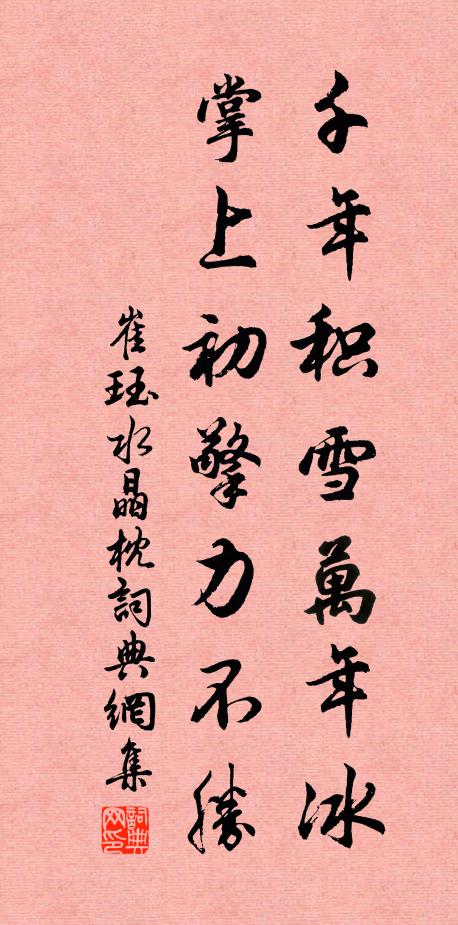 千年积雪萬年冰
掌上初擎力不勝
崔珏水晶枕詞典網集
詞典网印